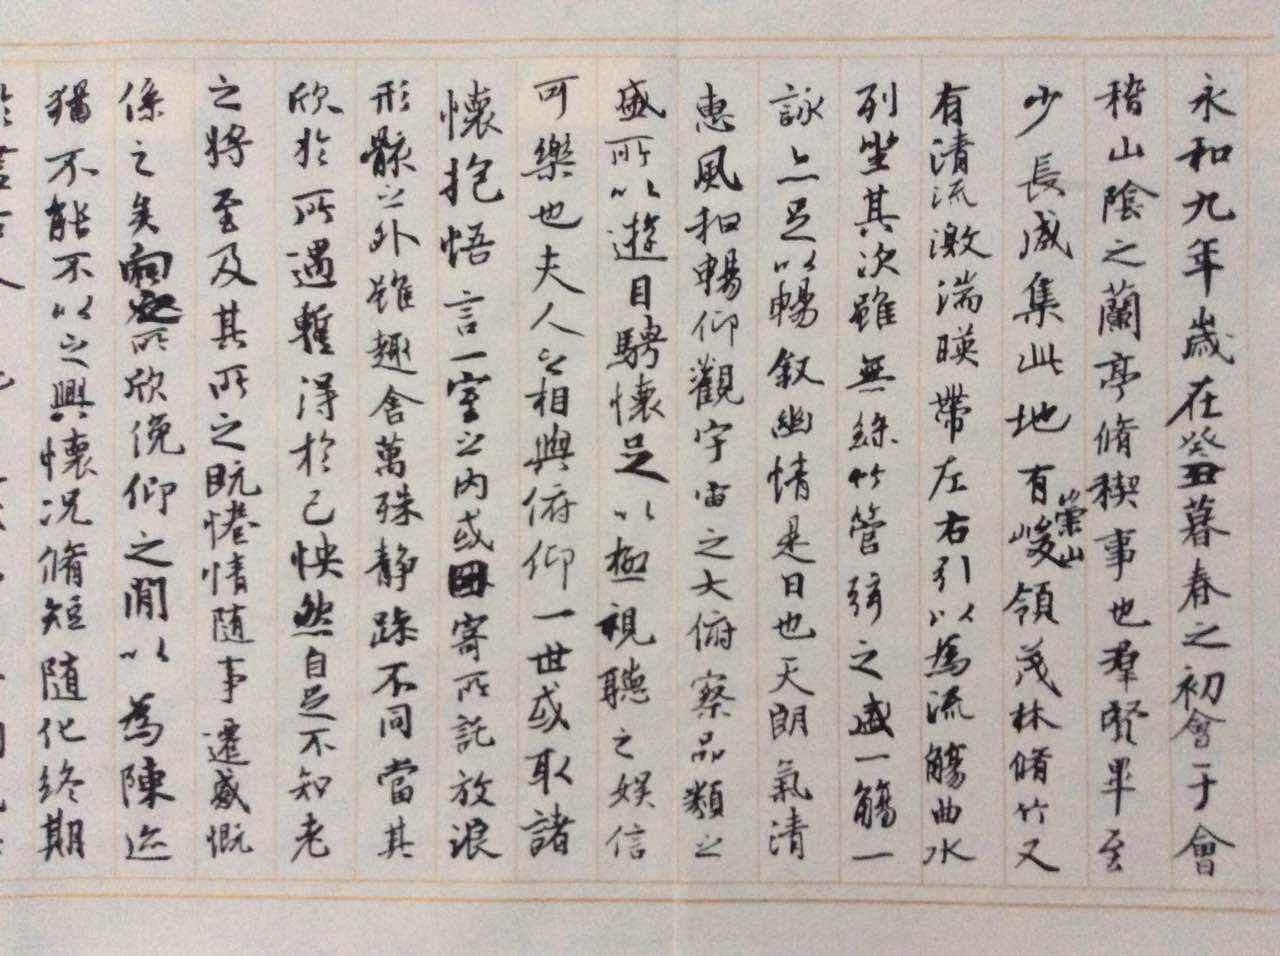 永和九年歲在癸丑暮春之初會于會
稽山陰之蘭亭脩稧事也羣賢畢至
少長咸集此地有峻領茂林脩竹又
崇山
有清流激湍暎帶左右引以為流觴曲水
列坐其次雖無絲竹管弦之盛一觴一
詠亦足以暢叙幽情是日也天朗氣清
惠風和暢仰觀宇宙之大俯察品類之
盛所以遊目騁懷足以極視聽之娛信
可樂也夫人之相與俯仰一世或取諸
懷抱悟言一室之內或因寄所託放浪
形骸之外雖趣舍萬殊静躁不同當其
欣於所遇暫得於己怏然自足不知老
之將至及其所之既惓情隨事遷感慨
係之矣向之所欣俛仰之閒以為陳迹
猶不能不以之興懷况脩短隨化終期